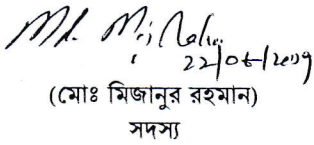 22/06/2009
(মোঃ মিজানুর রহমান)
সদস্য